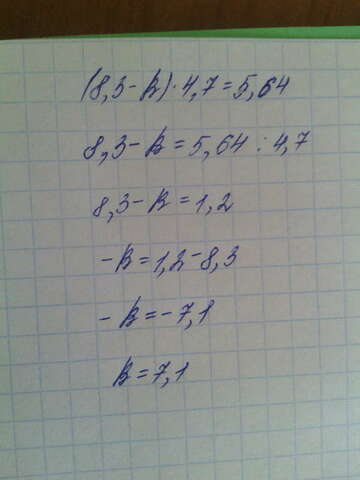 (8,3 - k) · 4,7 = 5,64
8,3 - k = 5,64 : 4,7
8,3 - k = 1,2
- k = 1,2 - 8,3
- k = - 7,1
k = 7,1